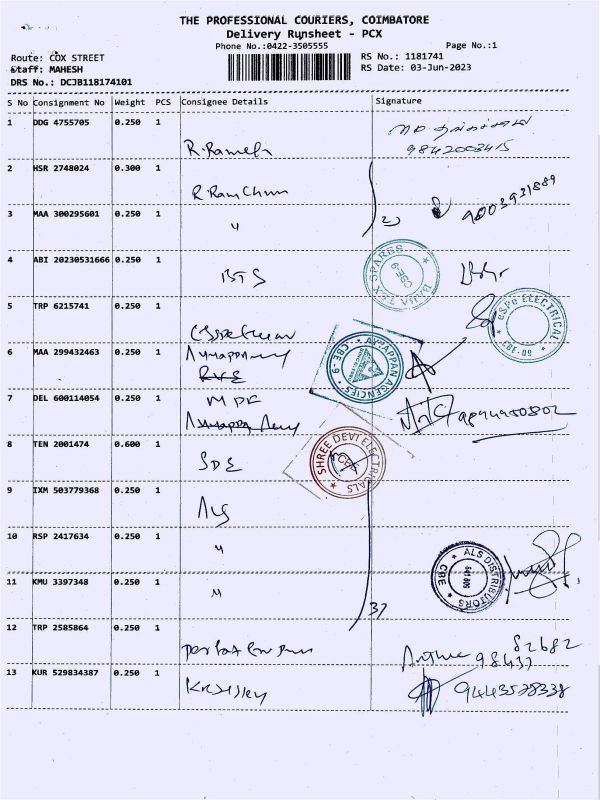 THE PROFESSIONAL COURIERS, COIMBATORE
Delivery Runsheet - PCX
Phone No.:0422-3505555 Page No.:1
Route: COX STREET RS No.: 1181741
Staff: MAHESH RS Date: 03-Jun-2023
DRS No.: DCJB118174101
S No Consignment No Weight PCS Consignee Details Signature
1 DDG 4755705 0.250 1
R. Ramesh 9842003415
2 HSR 2748024 0.300 1
R. Ram Chun
3 MAA 300295601 0.250 1
" 9003931889
4 ABI 20230531666 0.250 1
BTS
5 TRP 6215741 0.250 1
eSPe ELECTRICAL
6 MAA 299432463 0.250 1
AYYAPPAN AGENCIES
CBE-9
7 DEL 600114054 0.250 1
MPE
8 TEN 2001474 0.600 1
SDE SHREE DEVI ELECTRICALS
CBE
9 IXM 503779368 0.250 1
ALS
10 RSP 2417634 0.250 1
" ALS DISTRIBUTORS
CBE
11 KMU 3397348 0.250 1
"
12 TRP 2585864 0.250 1
82682
98437
13 KUR 529834387 0.250 1
9443578338